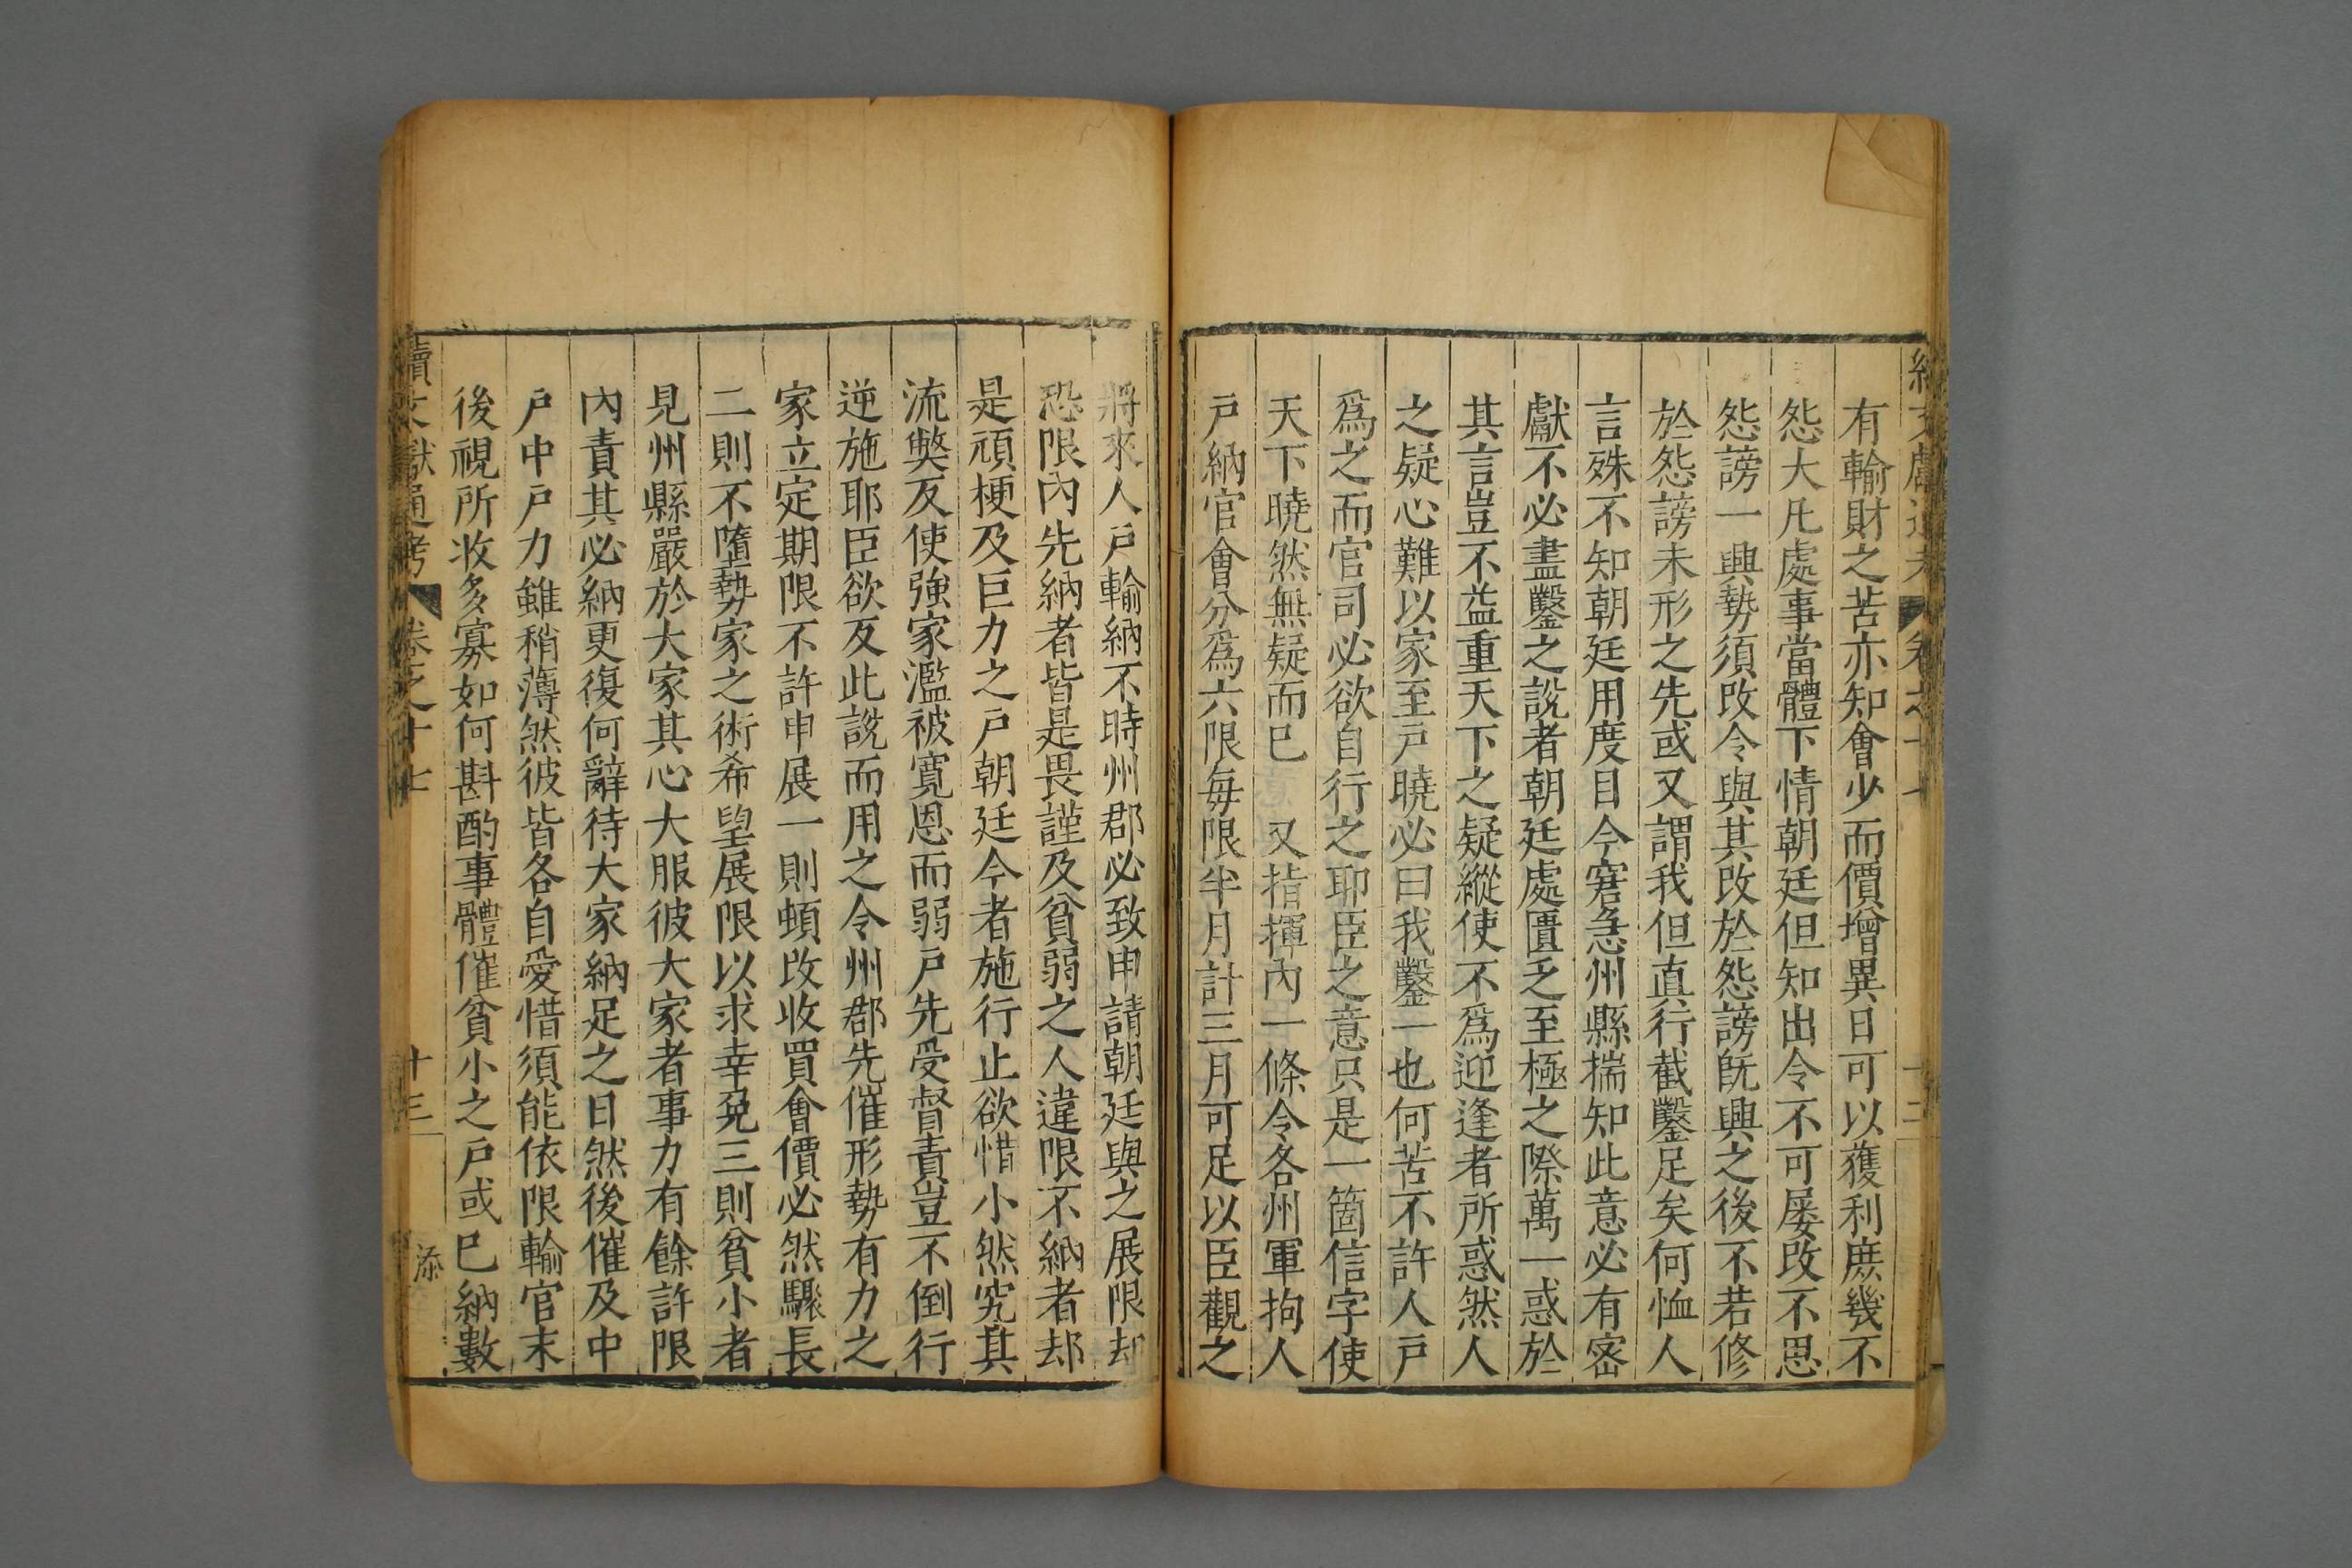 有輸財之苦亦知會少而價增異日可以獲利庶幾不
怨大凡處事當體下情朝廷但知出令不可屡改不思
怨謗一興勢須改令與其改於怨謗旣興之後不若修
於怨謗未形之先或又謂我但直行截鑿足矣何恤人
言殊不知朝廷用度目今窘急州縣揣知此意必有密
獻不必盡鑿之說者朝廷處匱乏至極之際萬一惑於
其言豈不益重天下之疑縱使不爲迎逢者所惑然人
之疑心難以家至戸曉必曰我鑿一也何苦不許人戸
爲之而官司必欲自行之耶臣之意只是一箇信字使
天下曉然無疑而已 又指揮內一條令各州軍拘人
戸納官會分爲六限每限半月計三月可足以臣觀之
將來人戸輸納不時州郡必致申請朝廷與之展限却
恐限內先納者皆是畏謹及貧弱之人違限不納者却
是頑梗及巨力之戸朝廷今者施行止欲惜小然究其
流獘反使強家濫被寬恩而弱戸先受督責豈不倒行
逆施耶臣欲反此說而用之令州郡先催形勢有力之
家立定期限不許申展一則頓改收買會價必然驟長
二則不墮勢家之術希望展限以求幸免三則貧小者
見州縣嚴於大家其心大服彼大家者事力有餘許限
內責其必納更復何辭待大家納足之日然後催及中
戸中戸力雖稍薄然彼皆各自愛惜須能依限輸官末
後視所收多寡如何斟酌事體催貧小之戸或已納數
續文獻通考 卷之十七 十三 添